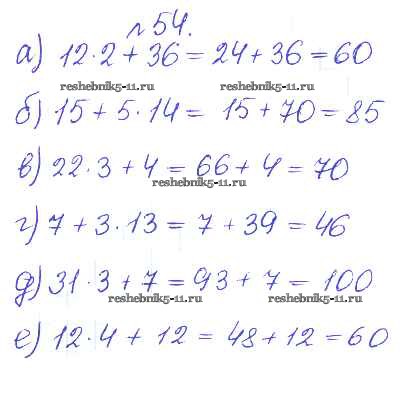 № 54.
а) 12·2 + 36 = 24 + 36 = 60
reshebnik5-11.ru reshebnik5-11.ru
б) 15 + 5·14 = 15 + 70 = 85
в) 22·3 + 4 = 66 + 4 = 70
reshebnik5-11.ru
г) 7 + 3·13 = 7 + 39 = 46
д) 31·3 + 7 = 93 + 7 = 100
reshebnik5-11.ru reshebnik5-11.ru
е) 12·4 + 12 = 48 + 12 = 60